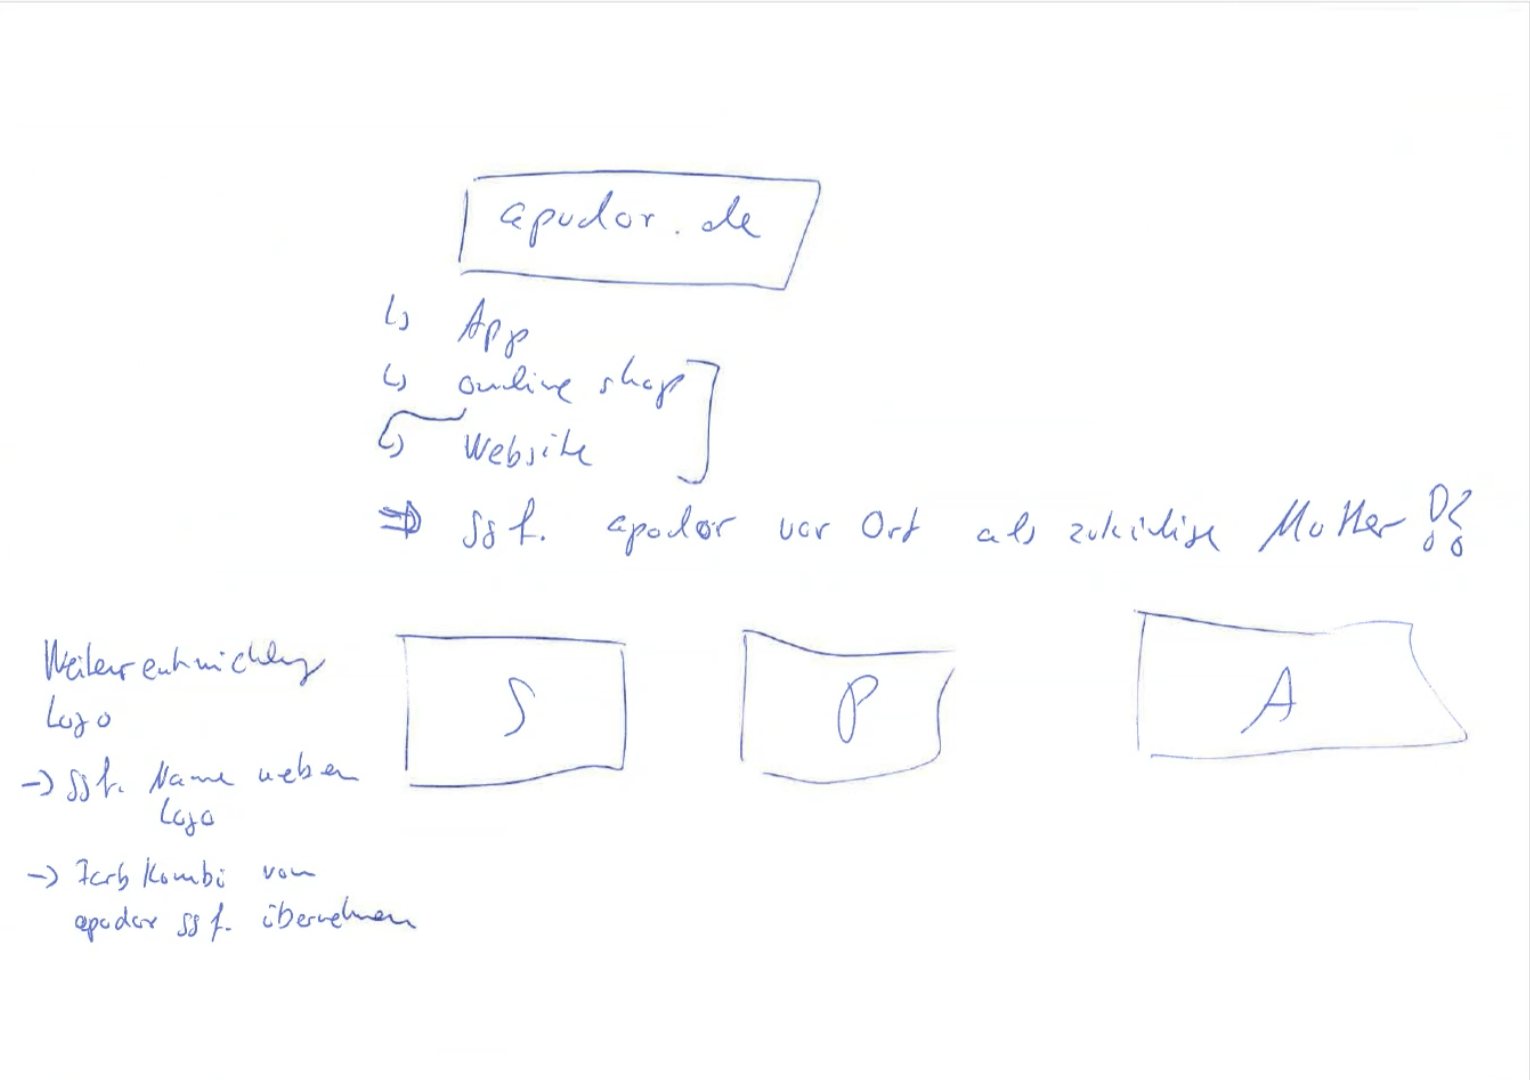 apodor.de
↳ App
↳ online shop
↳ Website
⇒ ggf. apodor vor Ort als Mutter !?
S
P
A
Weiterentwicklung
Logo
→ ggf. Name neben
Logo
→ Farbkombi von
apodor ggf. übernehmen